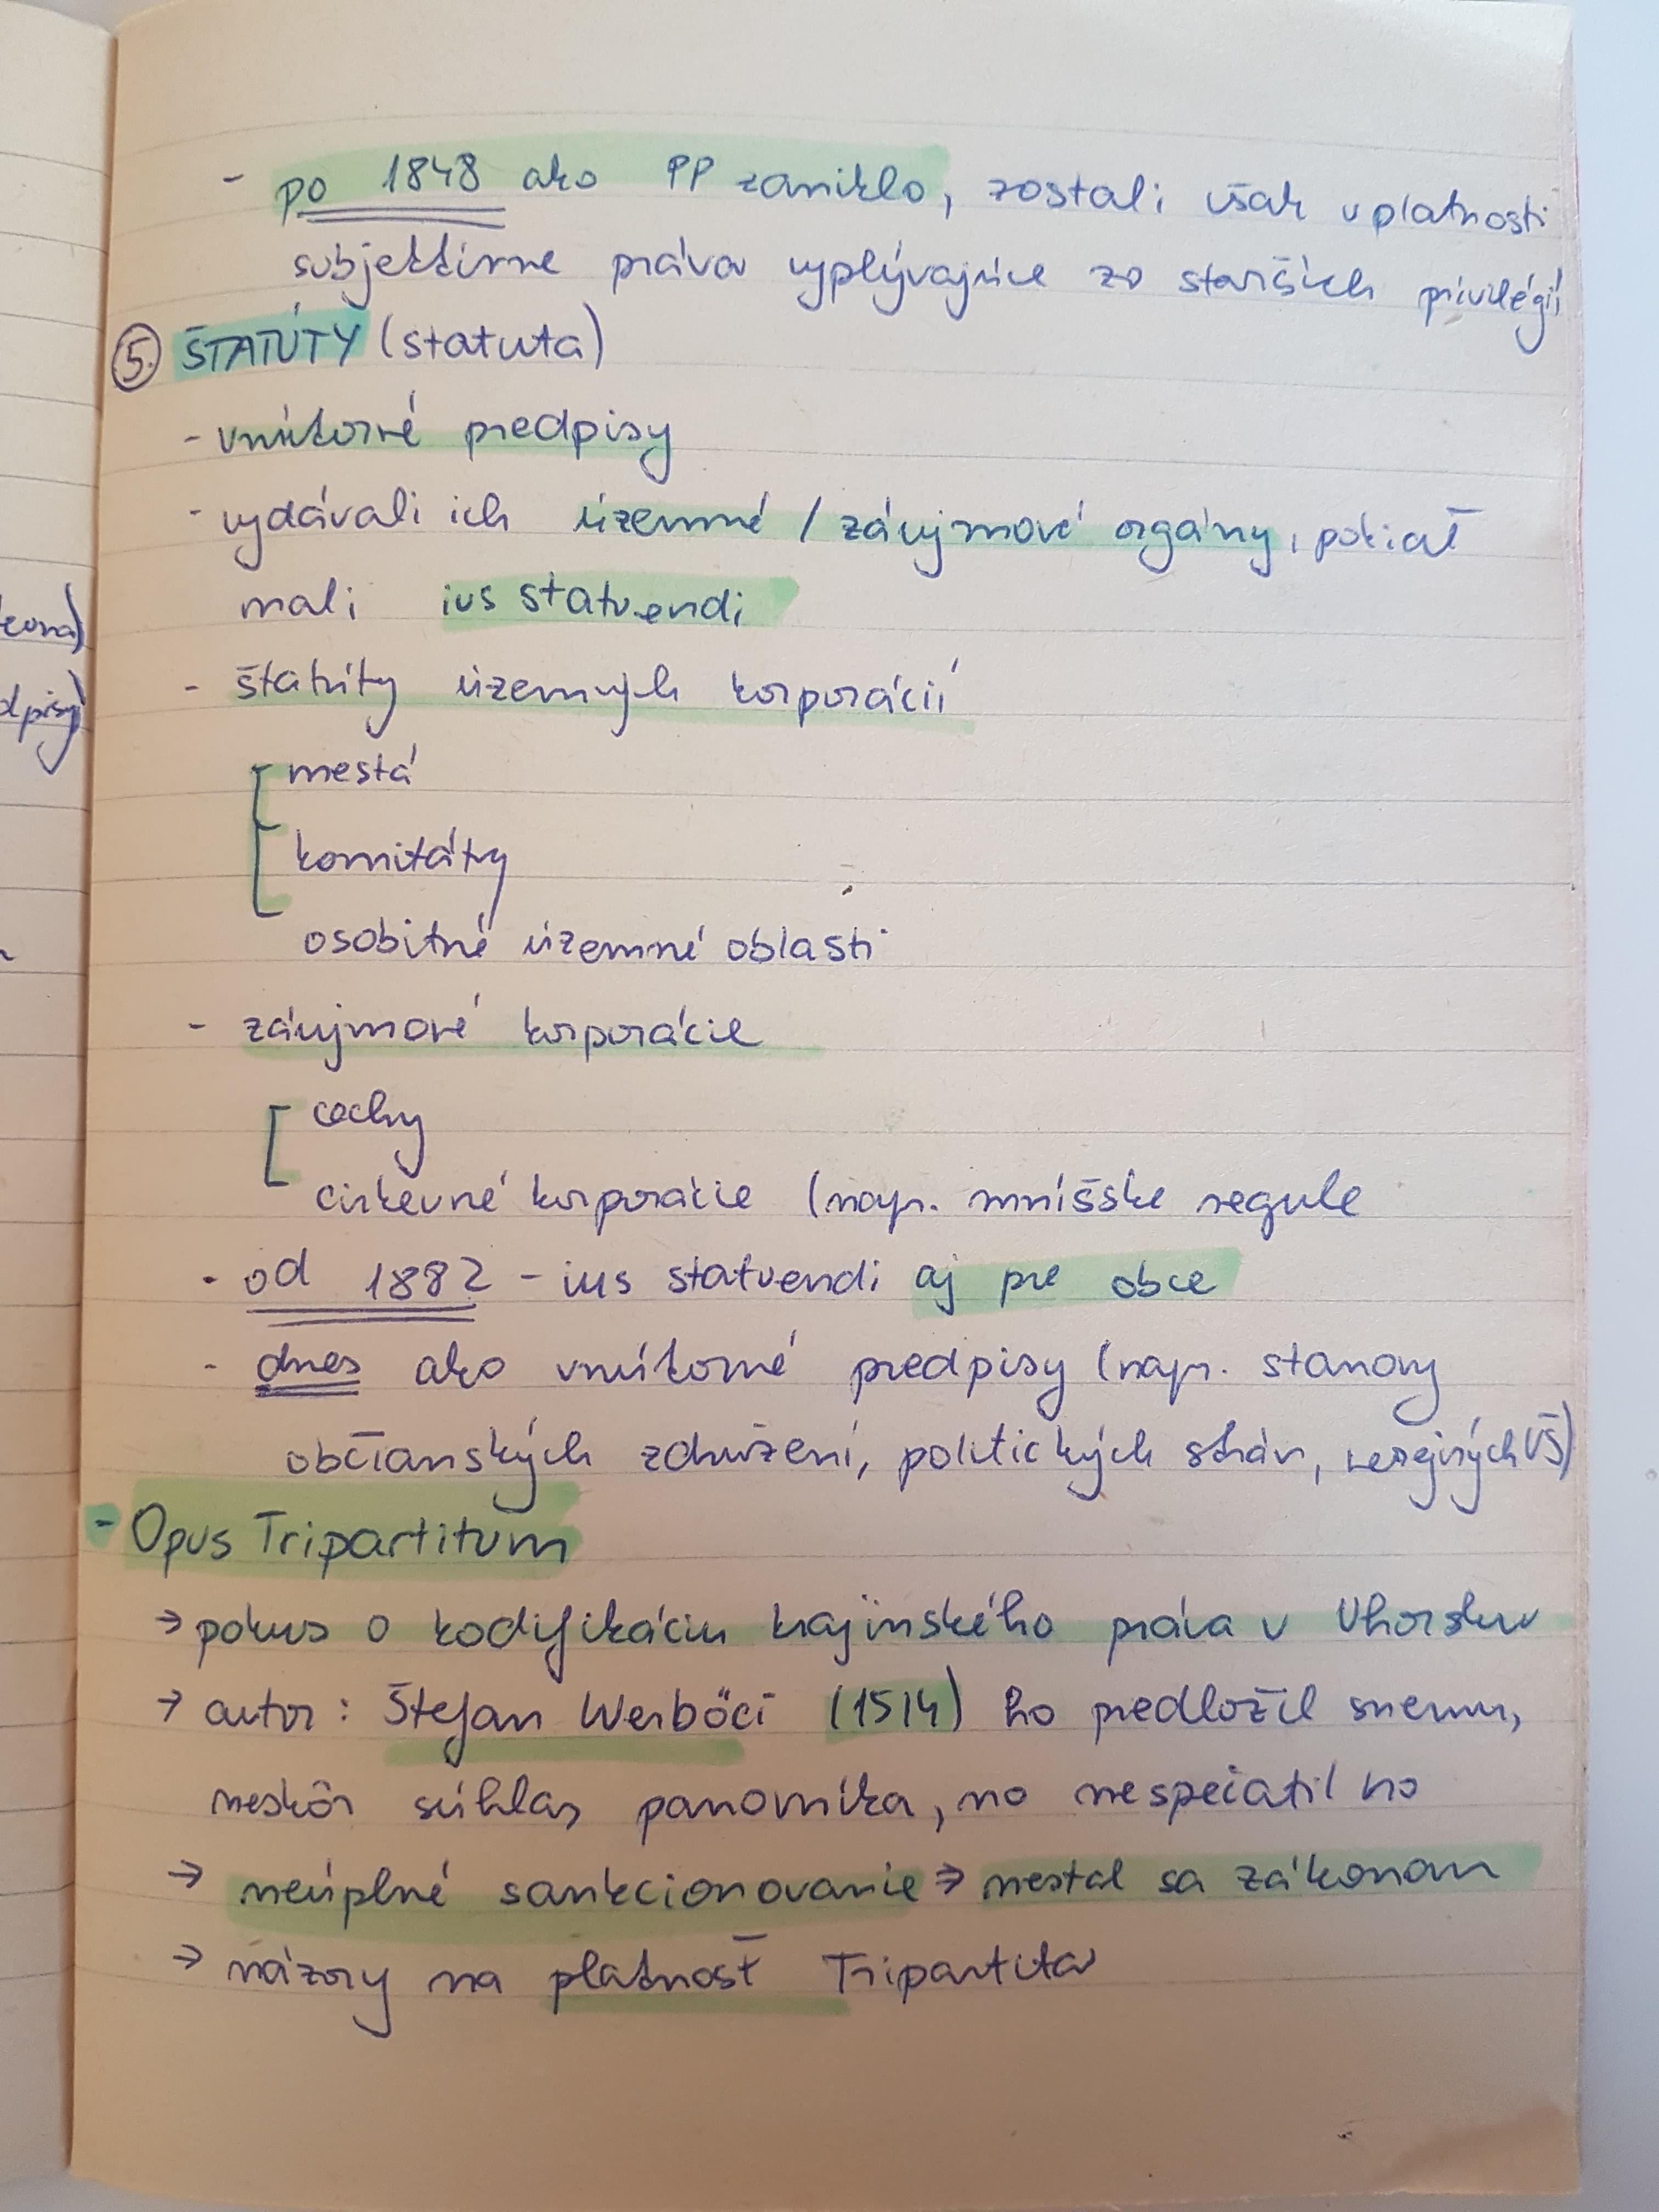 - po 1848 ako PP zaniklo, zostali však v platnosti
subjektívne práva vyplývajúce zo starších privilégií
5. ŠTATÚTY (statuta)
- vnútorné predpisy
- vydávali ich územné / záujmové orgány, pokiaľ
mali ius statuendi
- štatúty územných korporácií
mestá
komitáty
osobitné územné oblasti
- záujmové korporácie
cechy
cirkevné korporácie (napr. mníšske regule
- od 1882 - ius statuendi aj pre obce
- dnes ako vnútorné predpisy (napr. stanovy
občianských združení, politických strán, verejných VŠ)
- Opus Tripartitum
→ pokus o kodifikáciu krajinského práva v Uhorsku
→ autor: Štefan Werbőci (1514) ho predložil snemu,
neskôr súhlas panovníka, no nespečatil ho
→ neúplné sankcionovanie → nestal sa zákonom
→ názory na platnosť Tripartita
eona)
dpisy)